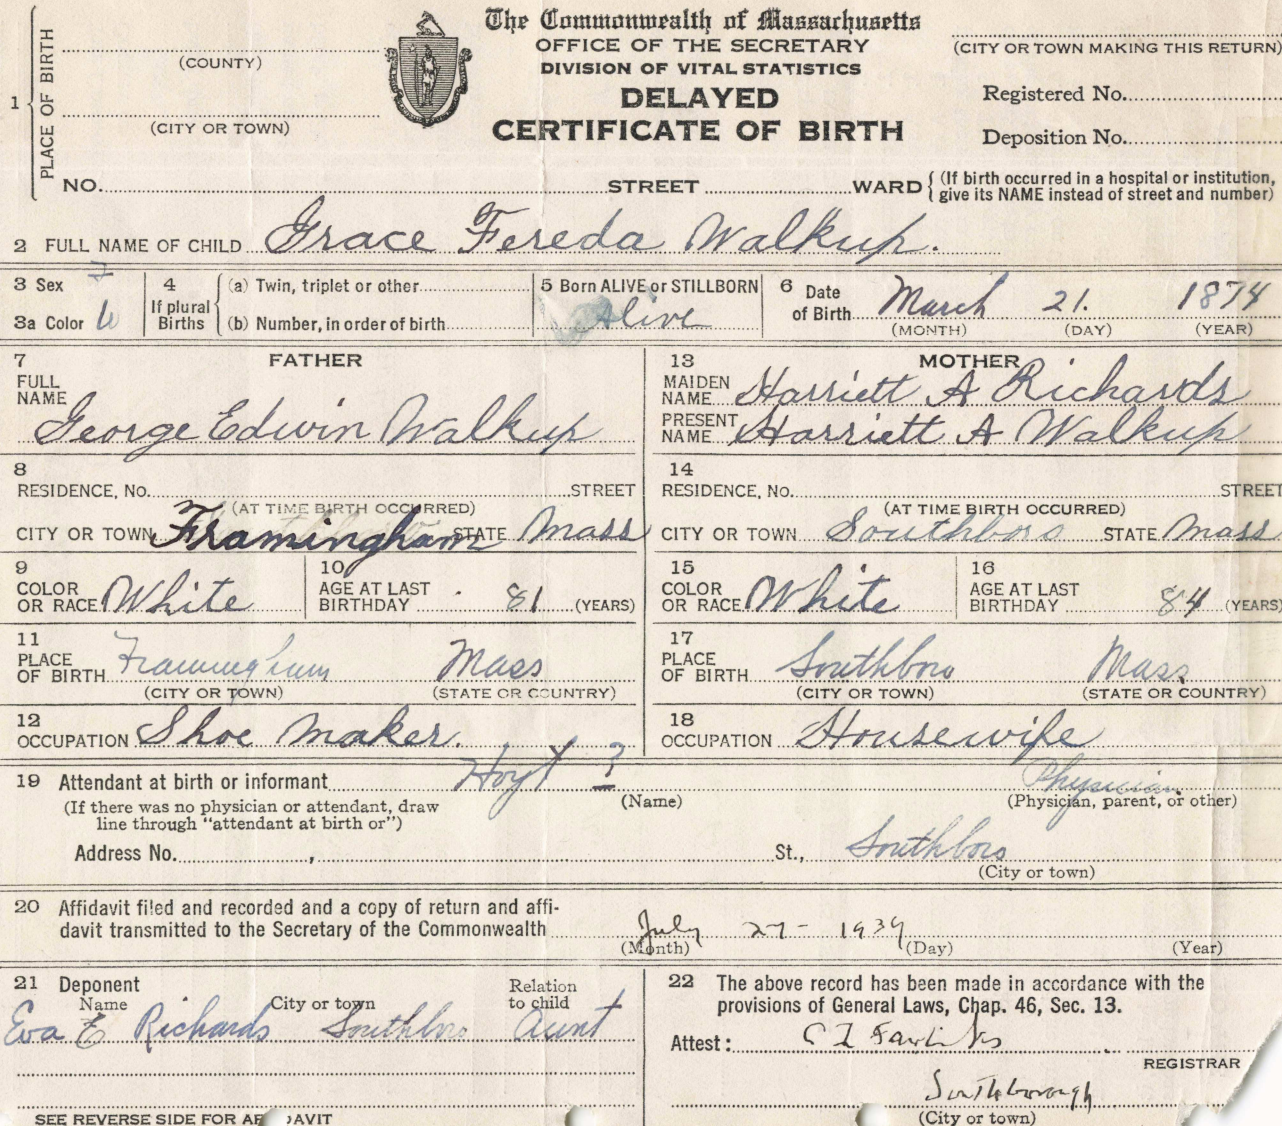 The Commonwealth of Massachusetts
OFFICE OF THE SECRETARY
DIVISION OF VITAL STATISTICS
DELAYED
CERTIFICATE OF BIRTH
1 PLACE OF BIRTH
(COUNTY)
(CITY OR TOWN)
(CITY OR TOWN MAKING THIS RETURN)
Registered No.
Deposition No.
NO. STREET WARD (If birth occurred in a hospital or institution, give its NAME instead of street and number)
2 FULL NAME OF CHILD Grace Fereda Walkup.
3 Sex F
3a Color W
4 If plural Births
(a) Twin, triplet or other
(b) Number, in order of birth
5 Born ALIVE or STILLBORN
Alive
6 Date of Birth March 21. 1874
(MONTH) (DAY) (YEAR)
7 FATHER
FULL NAME
George Edwin Walkup
8
RESIDENCE, No. STREET
(AT TIME BIRTH OCCURRED)
CITY OR TOWN Framingham STATE Mass
9 COLOR OR RACE White
10 AGE AT LAST BIRTHDAY 81 (YEARS)
11 PLACE OF BIRTH Framingham Mass
(CITY OR TOWN) (STATE OR COUNTRY)
12 OCCUPATION Shoe maker.
13 MOTHER
MAIDEN NAME Harriett A Richards
PRESENT NAME Harriett A Walkup
14
RESIDENCE, No. STREET
(AT TIME BIRTH OCCURRED)
CITY OR TOWN Southboro STATE Mass
15 COLOR OR RACE White
16 AGE AT LAST BIRTHDAY 84 (YEARS)
17 PLACE OF BIRTH Southboro Mass.
(CITY OR TOWN) (STATE OR COUNTRY)
18 OCCUPATION Housewife
19 Attendant at birth or informant Hoyt ? Physician
(Name) (Physician, parent, or other)
(If there was no physician or attendant, draw
line through "attendant at birth or")
Address No. St., Southboro
(City or town)
20 Affidavit filed and recorded and a copy of return and affi-
davit transmitted to the Secretary of the Commonwealth July 27- 1939
(Month) (Day) (Year)
21 Deponent
Name City or town Relation to child
Eva E Richards Southboro Aunt
SEE REVERSE SIDE FOR AFFIDAVIT
22 The above record has been made in accordance with the
provisions of General Laws, Chap. 46, Sec. 13.
Attest:
REGISTRAR
Southborough
(City or town)